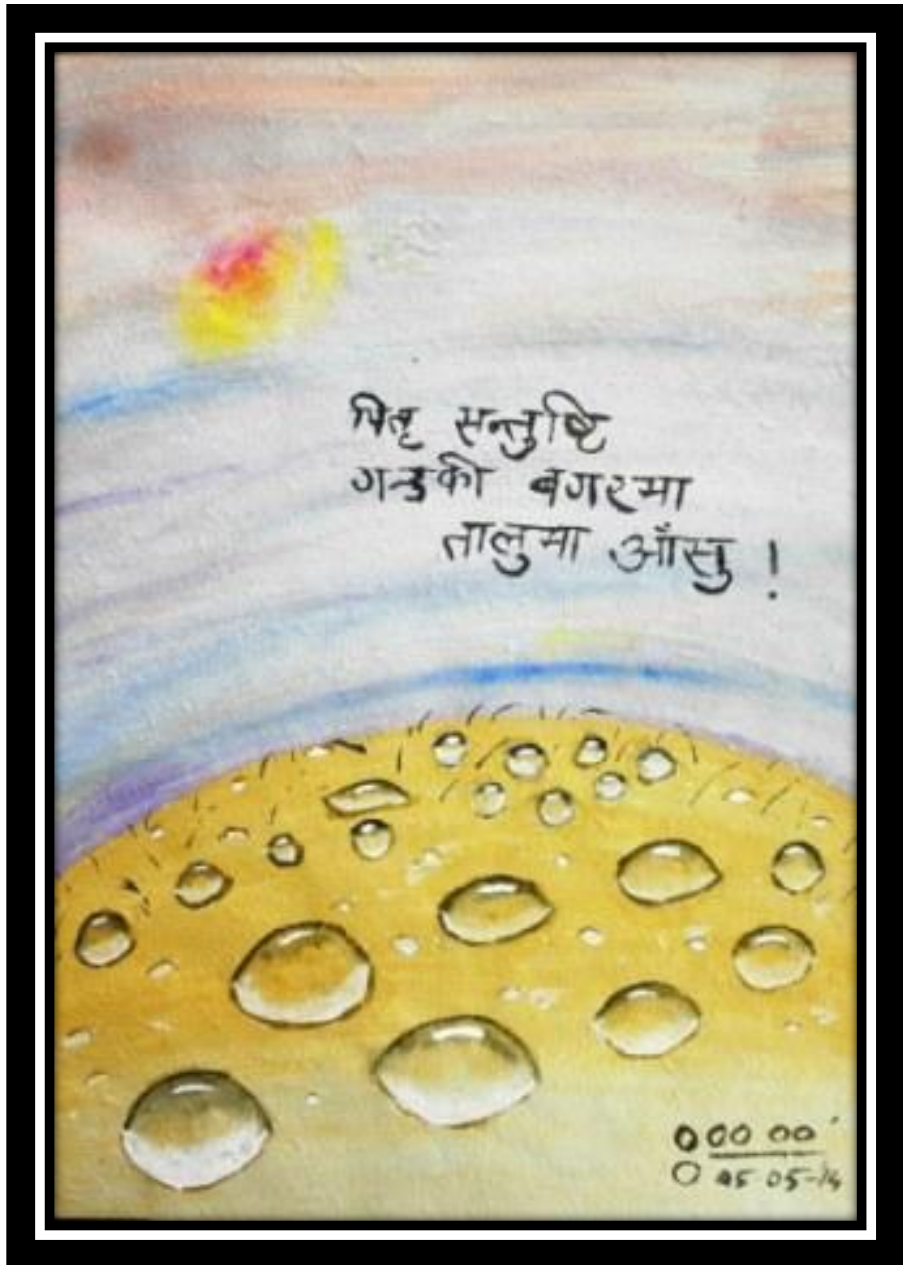 पितृ सन्तुष्टि
गन्डकी बगरमा
तालुमा आँसु !
05-14